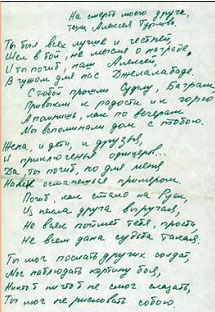 На смерть моего друга,
Алексея
Ты был всех лучше и честней,
Шел в бой, не мысля о награде,
И ты погиб, наш Алексей,
В чужом для нас Джелалабаде.
С тобой прошли Суджу, Баграм,
Привыкли к радости и к горю
А помнишь, как по вечерам
Мы вспоминали дом с тобою.
Жена, и дети, и друзья,
И приключенья офицеров...
Да, ты погиб, но для меня
Навек останешься примером.
Погиб, как стало на Руси,
Из пекла друга выручая,
Не всем поймет тебя, прости,
Не всем дана судьба такая.
Ты мог послать других солдат,
Мог наблюдать картину боя,
Никто б ничто б не смог сказать,
Ты мог не рисковать собою.